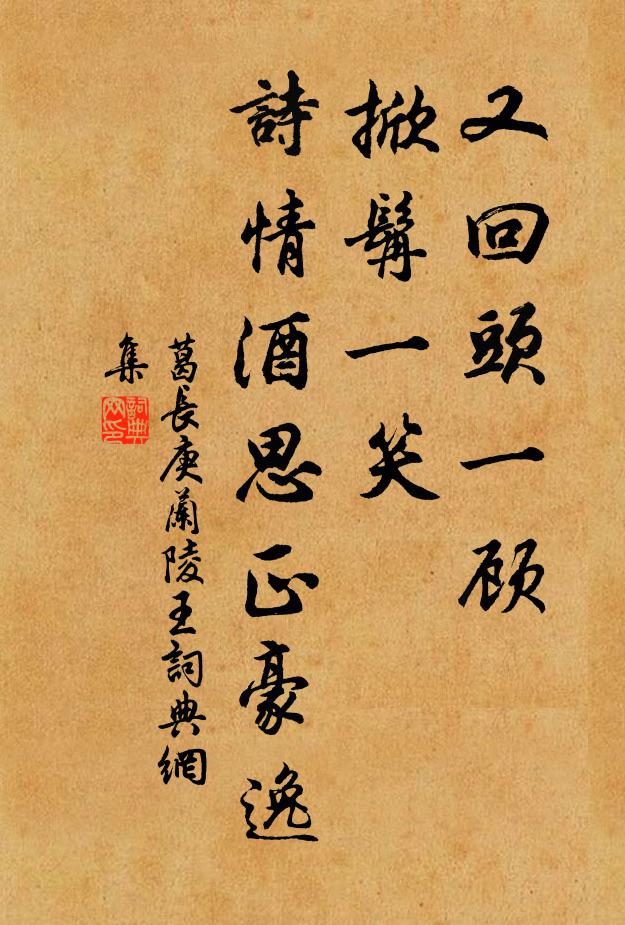 又回頭一顧
掀髯一笑
詩情酒思正豪逸
葛長庚蘭陵王詞典網
集
詞典
网印